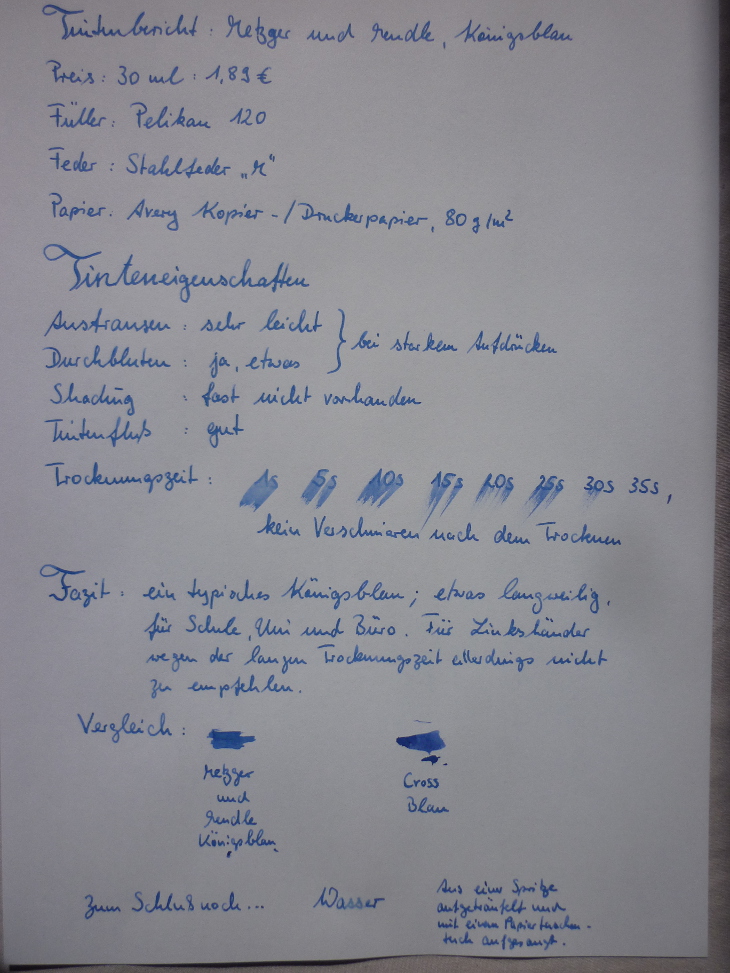 Tintenbericht: Metzger und Mendle, Königsblau
Preis: 30 ml: 1,89 €
Füller: Pelikan 120
Feder: Stahlfeder „M“
Papier: Avery Kopier-/Druckerpapier, 80 g/m²
Tinteneigenschaften
Ausfransen: sehr leicht } bei starkem Aufdrücken
Durchbluten: ja, etwas
Shading: fast nicht vorhanden
Tintenfluß: gut
Trocknungszeit: 1s 5s 10s 15s 20s 25s 30s 35s,
kein Verschmieren nach dem Trocknen
Fazit: ein typisches Königsblau; etwas langweilig,
für Schule, Uni und Büro. Für Linkshänder
wegen der langen Trocknungszeit allerdings nicht
zu empfehlen.
Vergleich:
Metzger
und
Mendle
Königsblau
Cross
Blau
Zum Schluß noch... Wasser
Aus einer Spritze
aufgeträufelt und
mit einem Papiertaschen-
tuch aufgesaugt.